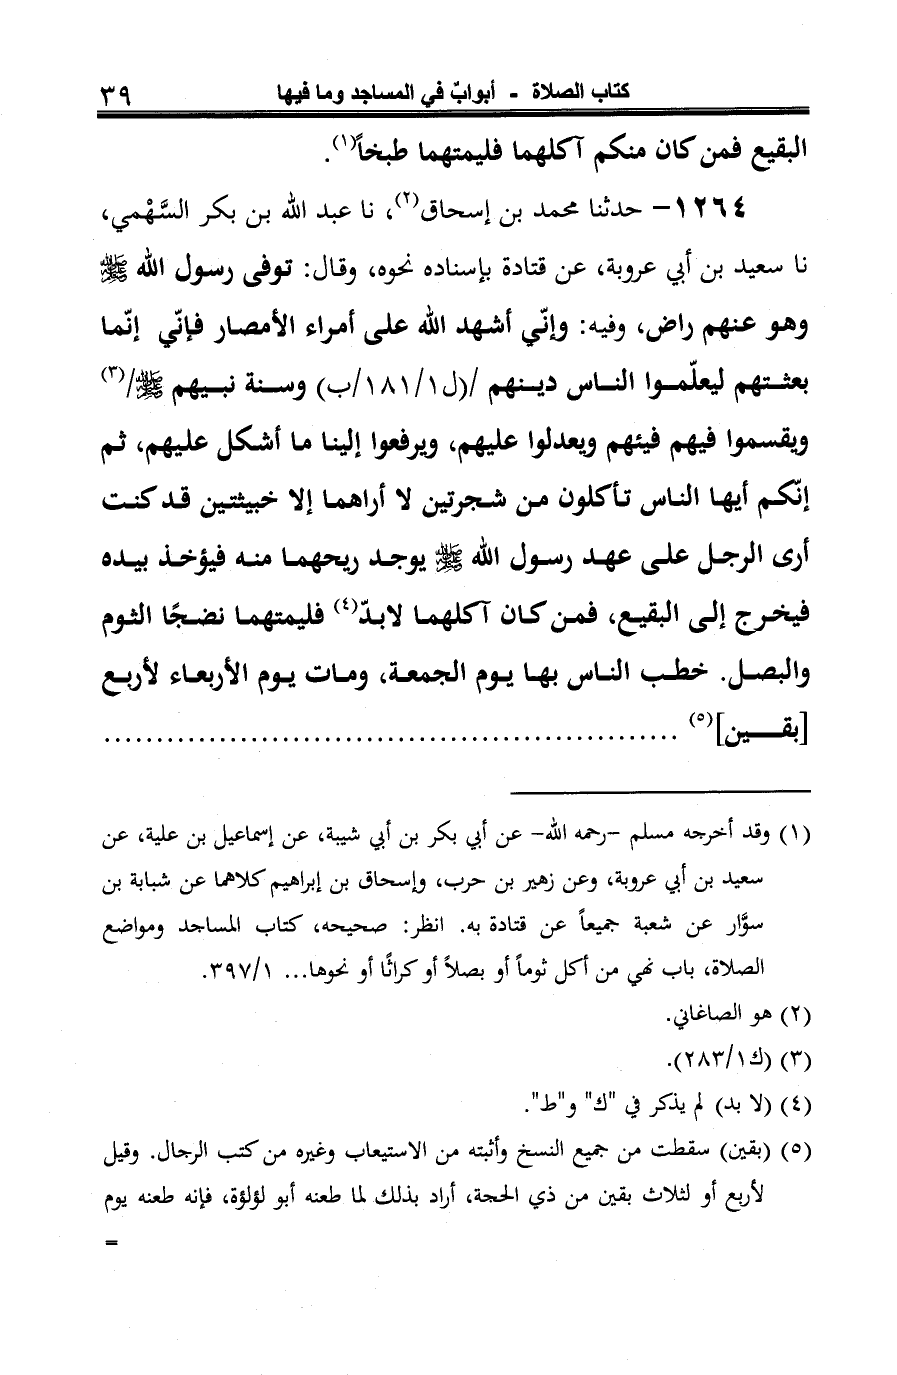 كتاب الصلاة - أبوابٌ في المساجد وما فيها ٣٩
البقيع فمن كان منكم آكلهما فليمتهما طبخاً(١).
١٢٦٤- حدثنا محمد بن إسحاق(٢)، نا عبد الله بن بكر السَّهْمي،
نا سعيد بن أبي عروبة، عن قتادة بإسناده نحوه، وقال: توفى رسول الله ﷺ
وهو عنهم راض، وفيه: وإنّي أشهد الله على أمراء الأمصار فإنّي إنّما
بعثتهم ليعلّموا الناس دينهم /(ل١/١٨١/ب) وسنة نبيهم ﷺ/(٣)
ويقسموا فيهم فيئهم ويعدلوا عليهم، ويرفعوا إلينا ما أشكل عليهم، ثم
إنّكم أيها الناس تأكلون من شجرتين لا أراهما إلا خبيثتين قد كنت
أرى الرجل على عهد رسول الله ﷺ يوجد ريحهما منه فيؤخذ بيده
فيخرج إلى البقيع، فمن كان آكلهما لابدّ(٤) فليمتهما نضجًا الثوم
والبصل. خطب الناس بها يوم الجمعة، ومات يوم الأربعاء لأربع
[بقين](٥) ......................................................
(١) وقد أخرجه مسلم -رحمه الله- عن أبي بكر بن أبي شيبة، عن إسماعيل بن علية، عن
سعيد بن أبي عروبة، وعن زهير بن حرب، وإسحاق بن إبراهيم كلاهما عن شبابة بن
سوَّار عن شعبة جميعاً عن قتادة به. انظر: صحيحه، كتاب المساجد ومواضع
الصلاة، باب نهي من أكل ثوماً أو بصلاً أو كراثًا أو نحوها... ٣٩٧/١.
(٢) هو الصاغاني.
(٣) (ك١/٢٨٣).
(٤) (لا بد) لم يذكر في "ك" و"ط".
(٥) (بقين) سقطت من جميع النسخ وأثبته من الاستيعاب وغيره من كتب الرجال. وقيل
لأربع أو لثلاث بقين من ذي الحجة، أراد بذلك لما طعنه أبو لؤلؤة، فإنه طعنه يوم
=